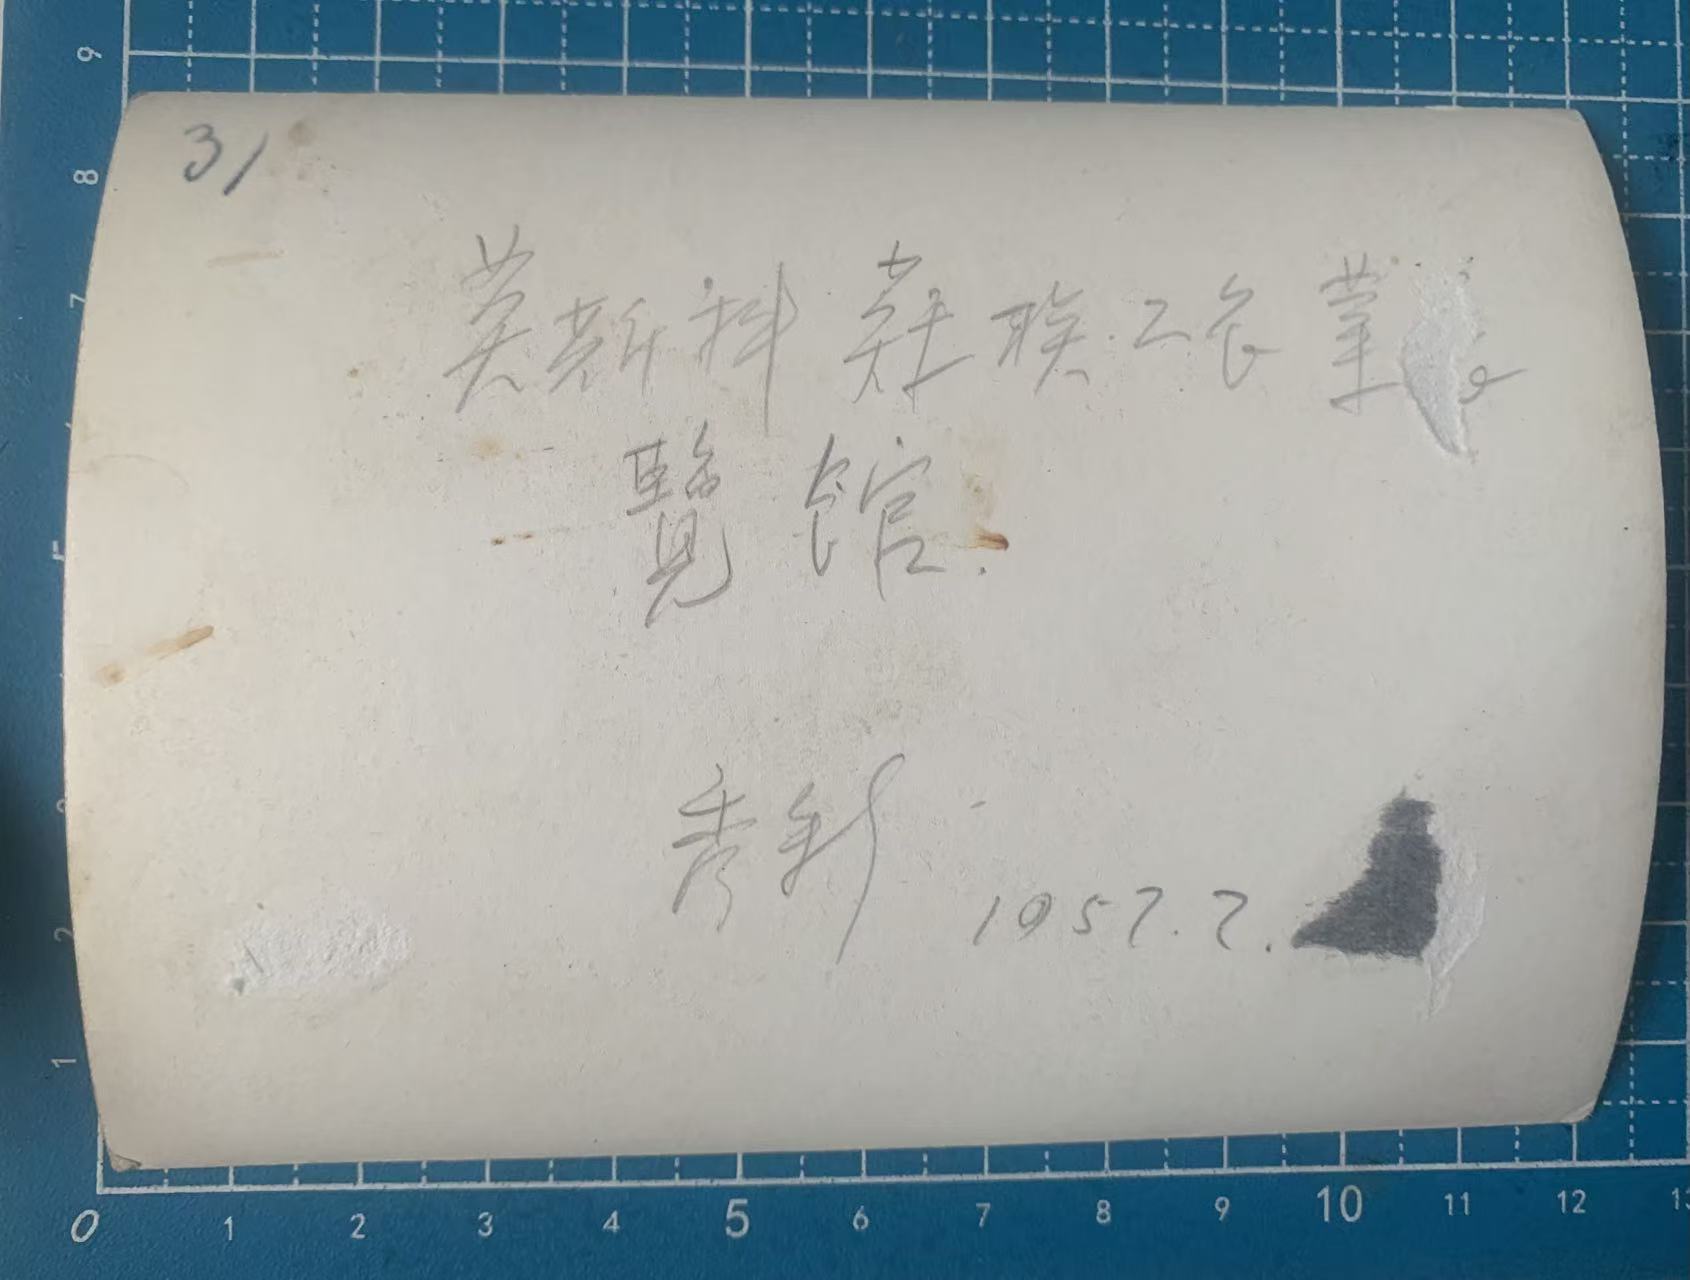 31
莫斯科 苏联工农業展
覽馆.
秀钊
1957.7.
9
8
7
5
2
1
0
1
2
3
4
5
6
7
8
9
10
11
12